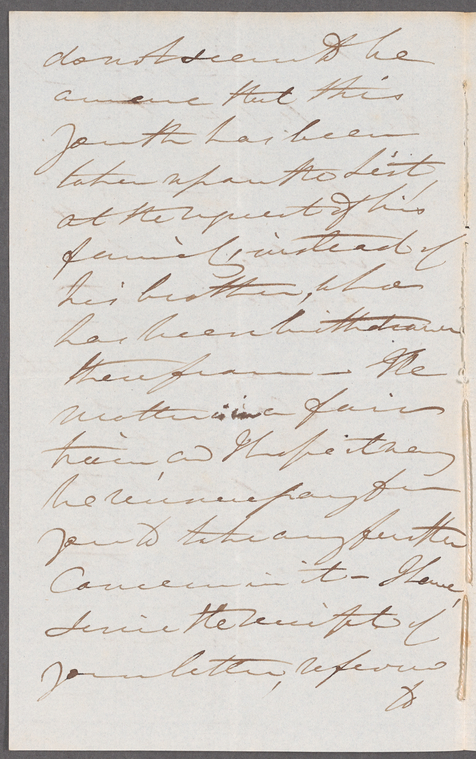 do not seem to be
aware that this
youth has been
taken upon the List,
at the request of his
family, instead of
his brother, who
has been withdrawn
therefrom — The
matter is in a fair
train and I hope it may
be unnecessary for
you to take any further
concern in it — I have,
since the receipt of
your letter, referred
to